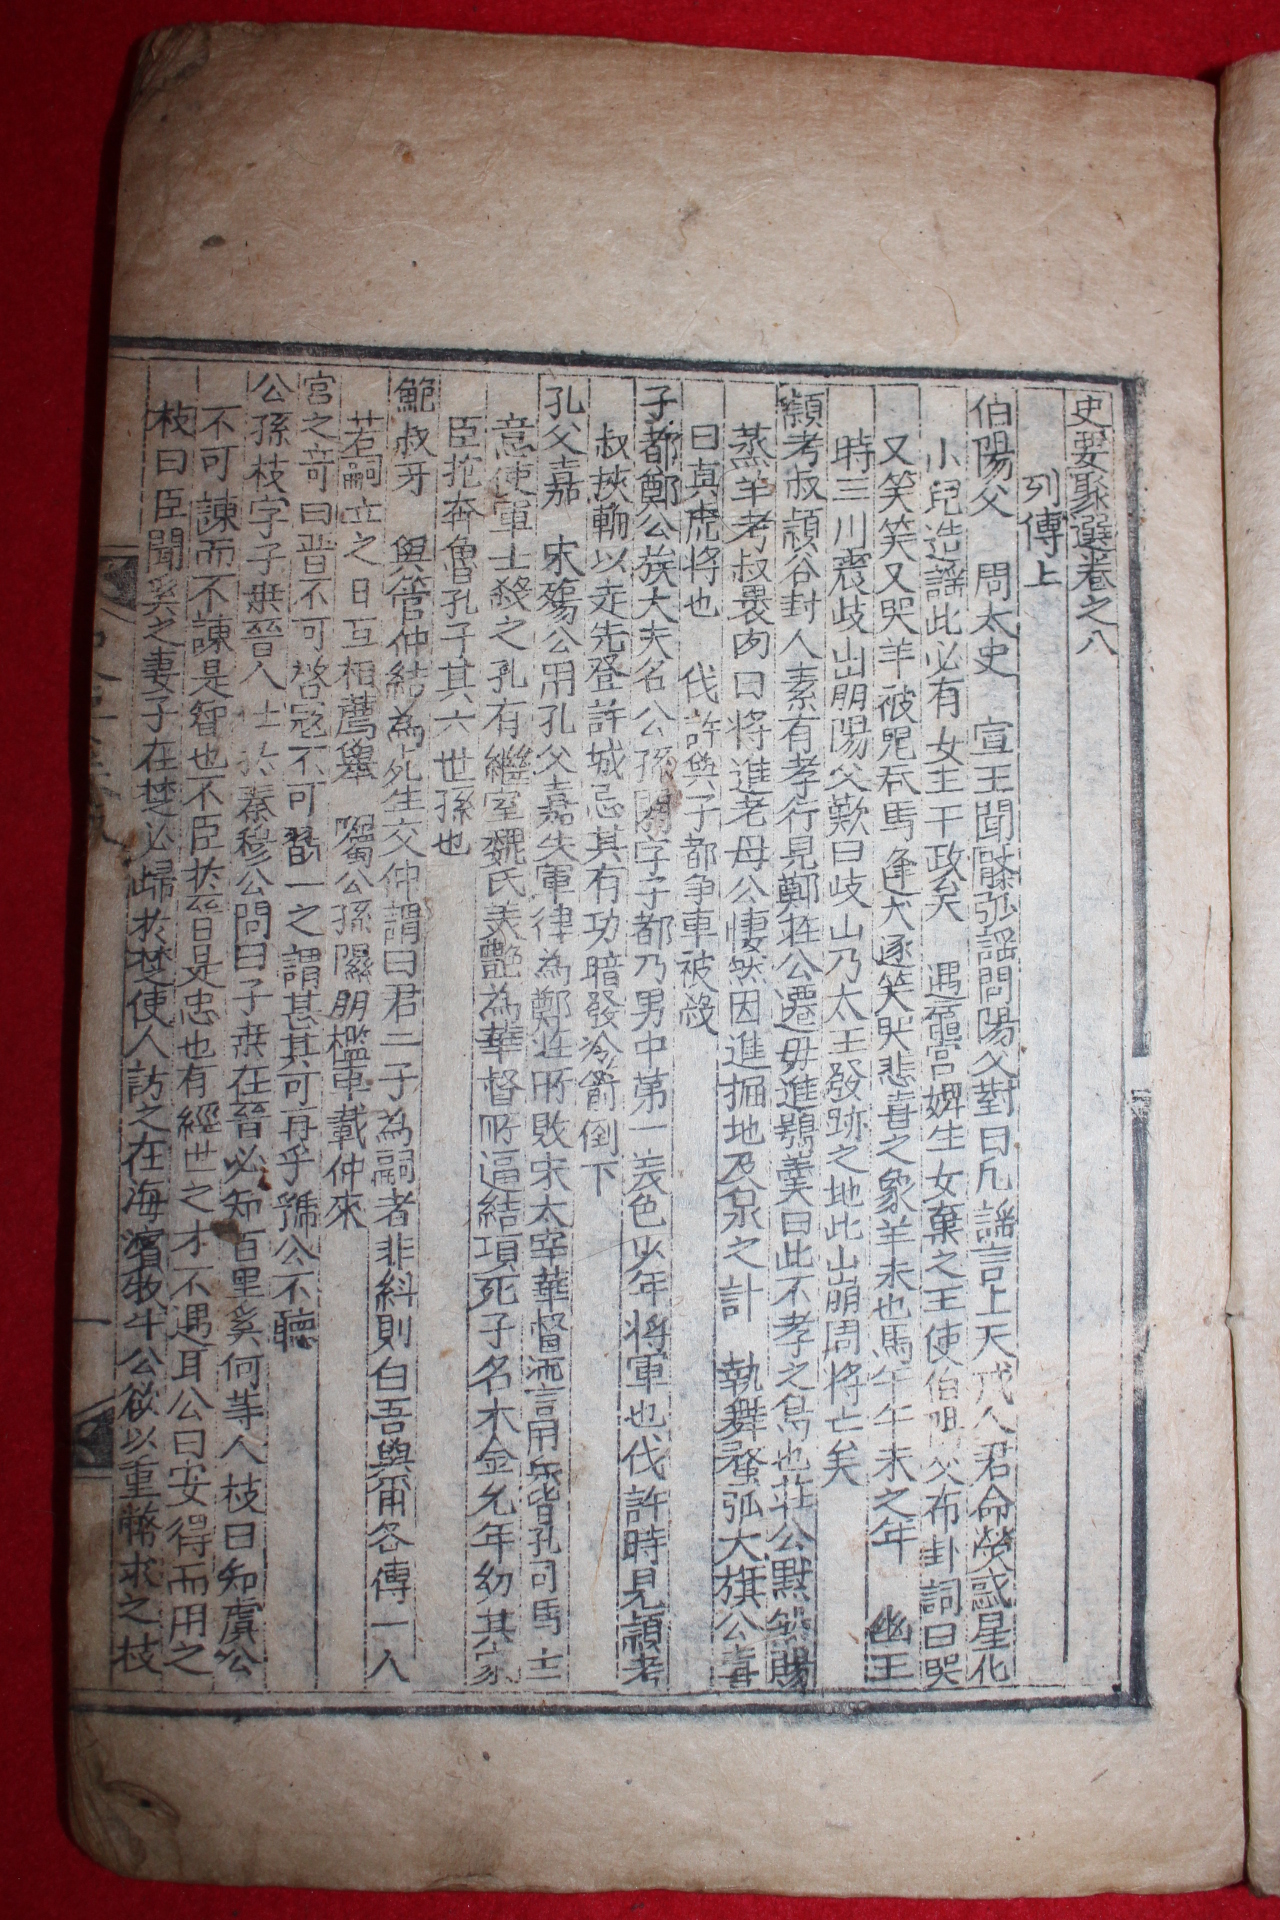 史要聚選卷之八
列傳上
伯陽父 周太史 宣王聞檿弧謠問陽父對曰凡謠言上天戒人君命熒惑星化
小兒造謠此必有女主干政矣 遇宮婢生女棄之王使伯陽父布卦詞曰哭
又笑笑又哭羊被鬼吞馬逢犬逐笑哭悲喜之象羊未也馬午午未之年 幽王
時三川震歧山崩陽父歎曰歧山乃太王發跡之地此山崩周將亡矣
頴考叔頴谷封人素有孝行見鄭莊公遷母進鴞羹曰此不孝之鳥也莊公默然賜
蒸羊考叔畏肉曰將進老母公悽然因進掘地及泉之計 執舞蝥弧大旗公喜
曰真虎將也 伐許與子都爭車被殺
子都鄭公族大夫名公孫閼字子都乃男中第一美色少年將軍也伐許時見頴考
叔挾輈以走先登許城忌其有功暗發冷箭倒下
孔父嘉 宋殤公用孔父嘉失軍律為鄭莊所敗宋太宰華督流言用民皆孔司馬主
意使軍士殺之孔有繼室魏氏美艶為華督所逼結項死子名木金允年幼其家
臣抱奔魯孔子其六世孫也
鮑叔牙 與管仲結為死生交仲謂曰君二子為嗣者非糾則白吾與爾各傳一人
若嗣立之日互相薦舉 囑公孫隰朋檻車載仲來
宮之奇曰晉不可啓寇不可翫一之謂甚其可再乎虢公不聽
公孫枝字子桒晉人仕於秦穆公問曰子桒在晉必知百里奚何等人枝曰知虞公
不可諫而不諫是智也不臣於晉是忠也有經世之才不遇耳公曰安得而用之
枝曰臣聞奚之妻子在楚必歸於楚使人訪之在海濱牧牛公欲以重幣求之枝
一